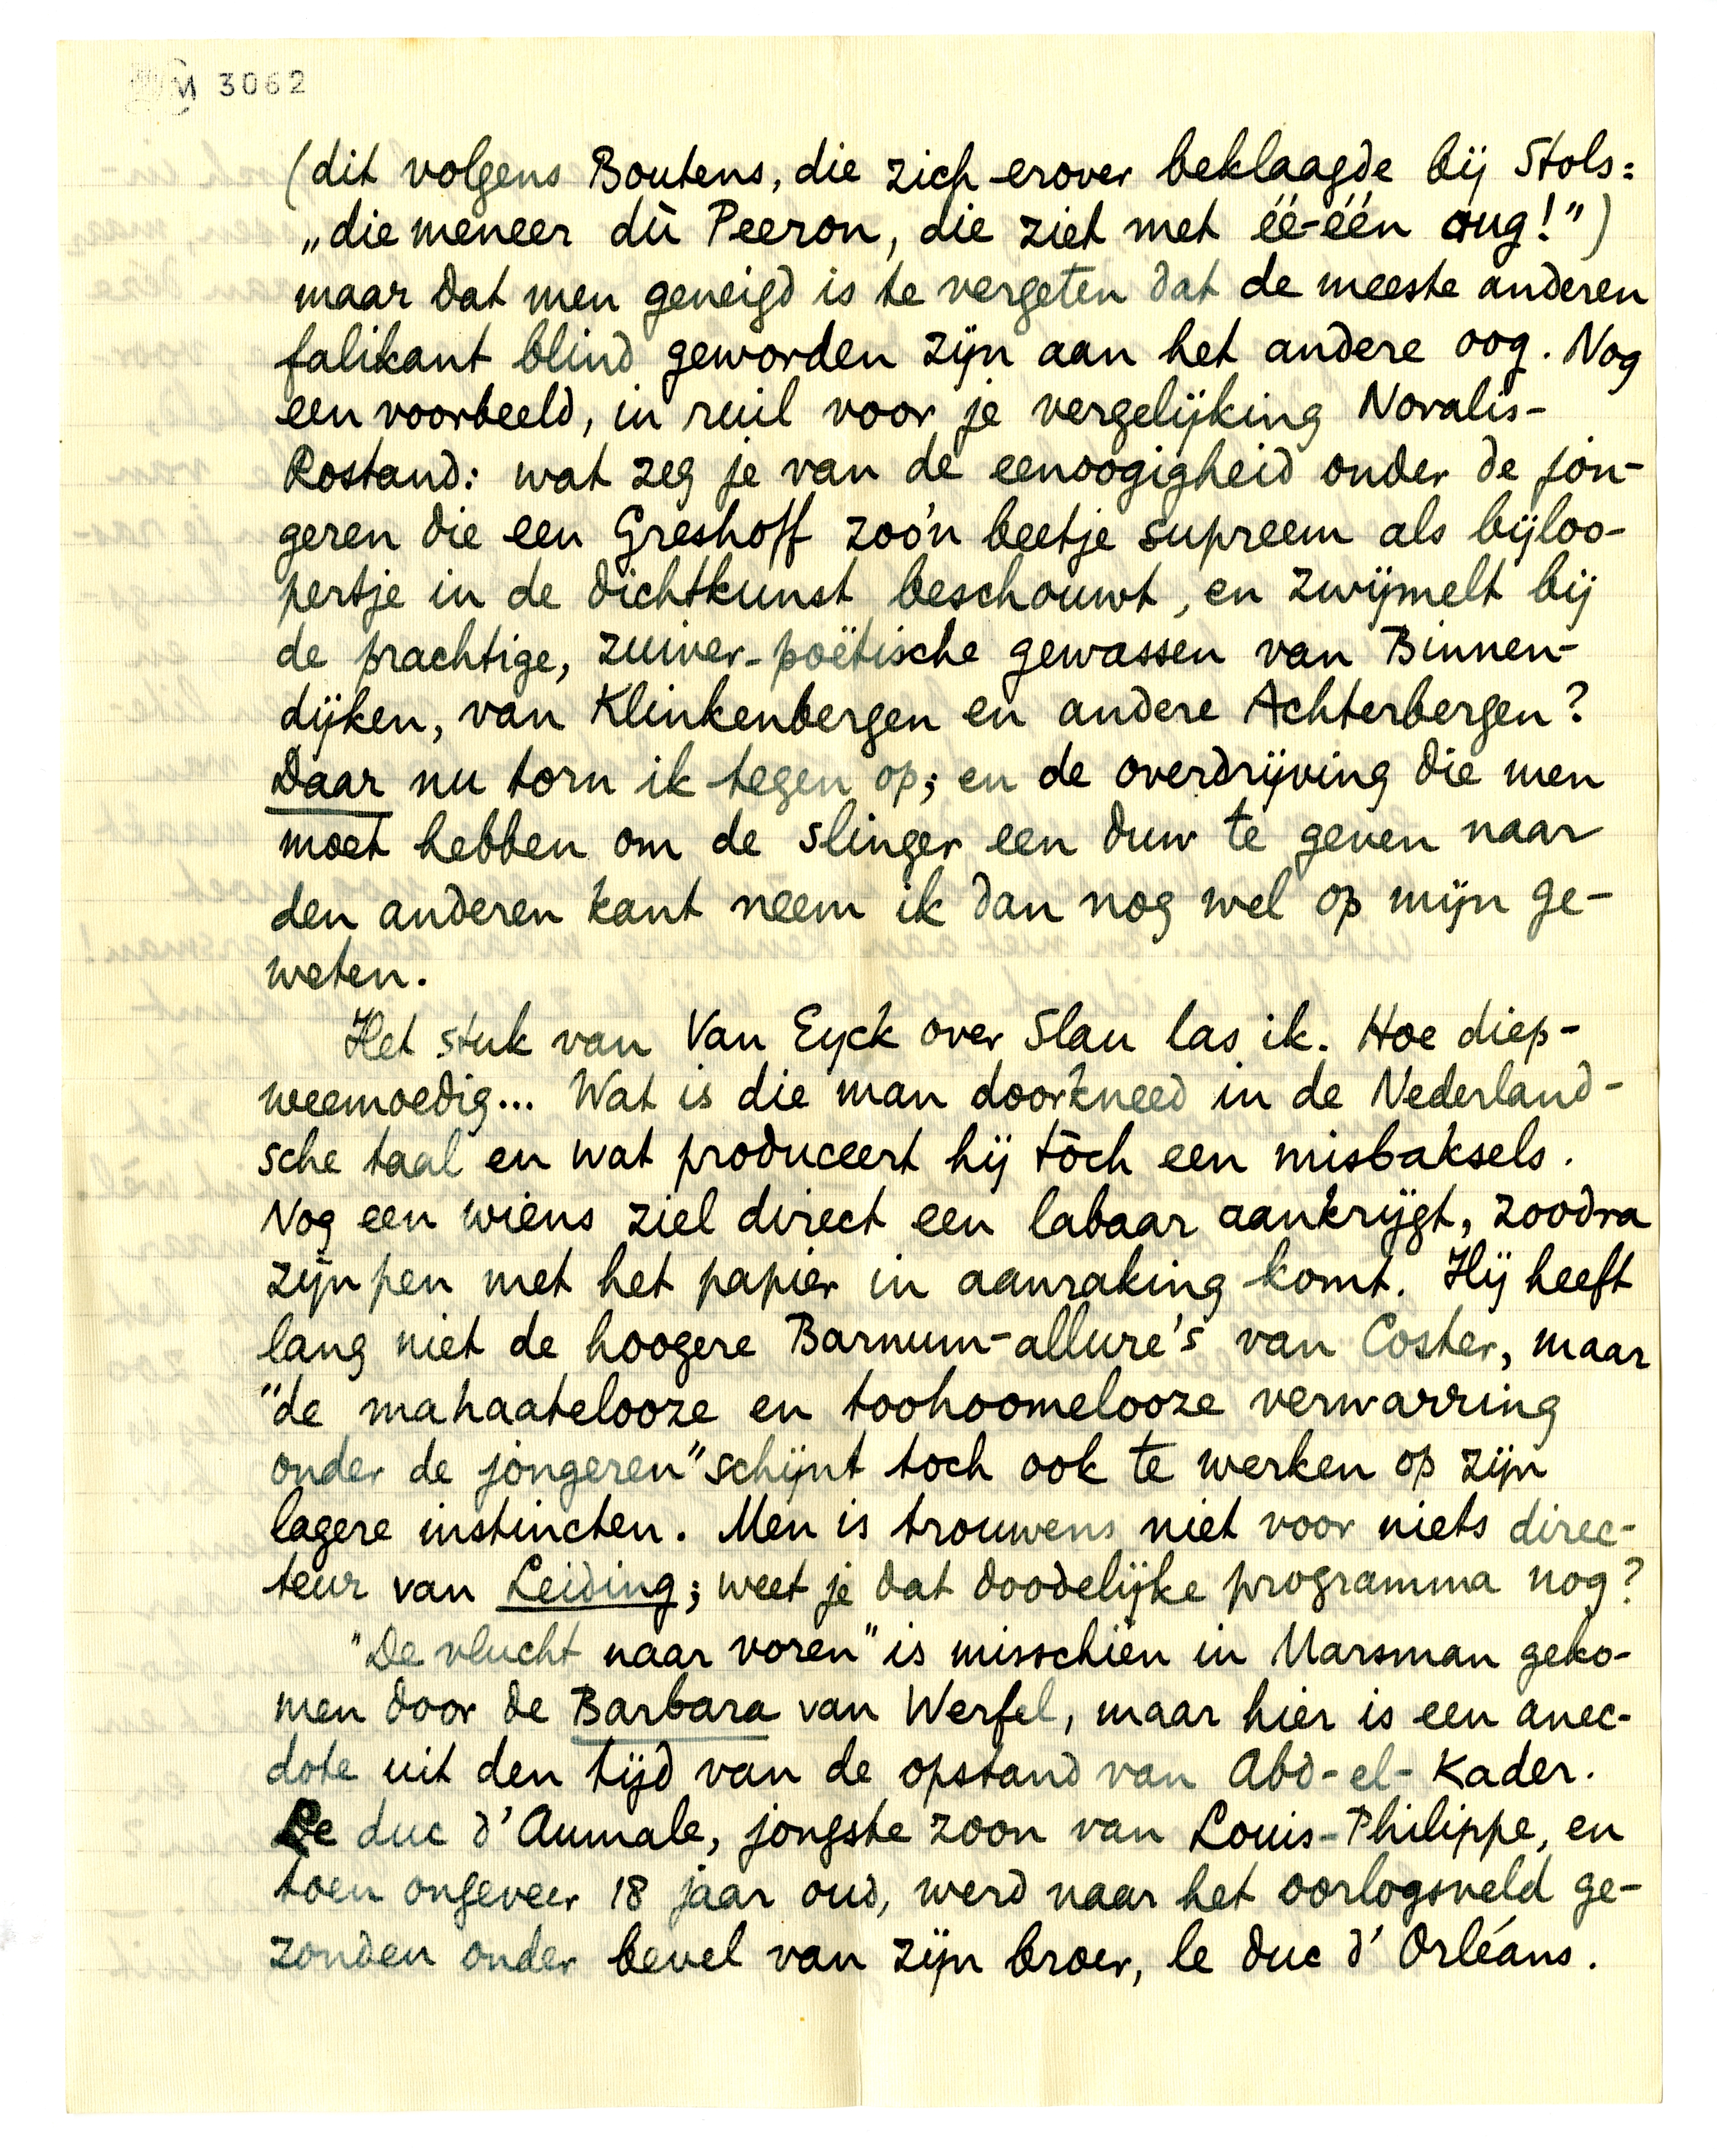 M 3062
(dit volgens Boutens, die zich erover beklaagde bij Stols:
„die meneer dù Peeron, die ziet met éé-één oug!")
maar dat men geneigd is te vergeten dat de meeste anderen
falikant blind geworden zijn aan het andere oog. Nog
een voorbeeld, in ruil voor je vergelijking Novalis-
Rostand: wat zeg je van de eenoogigheid onder de jon-
geren die een Greshoff zoo'n beetje supreem als bijloo-
pertje in de dichtkunst beschouwt, en zwijmelt bij
de prachtige, zuiver-poëtische gewassen van Binnen-
dijken, van Klinkenbergen en andere Achterbergen?
Daar nu torn ik tegen op; en de overdrijving die men
moet hebben om de slinger een duw te geven naar
den anderen kant neem ik dan nog wel op mijn ge-
weten.
Het stuk van Van Eyck over Slau las ik. Hoe diep-
weemoedig... Wat is die man doorkneed in de Nederland-
sche taal en wat produceert hij tòch een misbaksels.
Nog een wiens ziel direct een labaar aankrijgt, zoodra
zijn pen met het papier in aanraking komt. Hij heeft
lang niet de hoogere Barnum-allure's van Coster, maar
"de mahaatelooze en toohoomelooze verwarring
onder de jongeren" schijnt toch ook te werken op zijn
lagere instincten. Men is trouwens niet voor niets direc-
teur van Leiding; weet je dat doodelijke programma nog?
"De vlucht naar voren" is misschien in Marsman geko-
men door de Barbara van Werfel, maar hier is een anec-
dote uit den tijd van de opstand van Abd-el-Kader.
Le duc d'Aumale, jongste zoon van Louis-Philippe, en
toen ongeveer 18 jaar oud, werd naar het oorlogsveld ge-
zonden onder bevel van zijn broer, le duc d'Orléans.